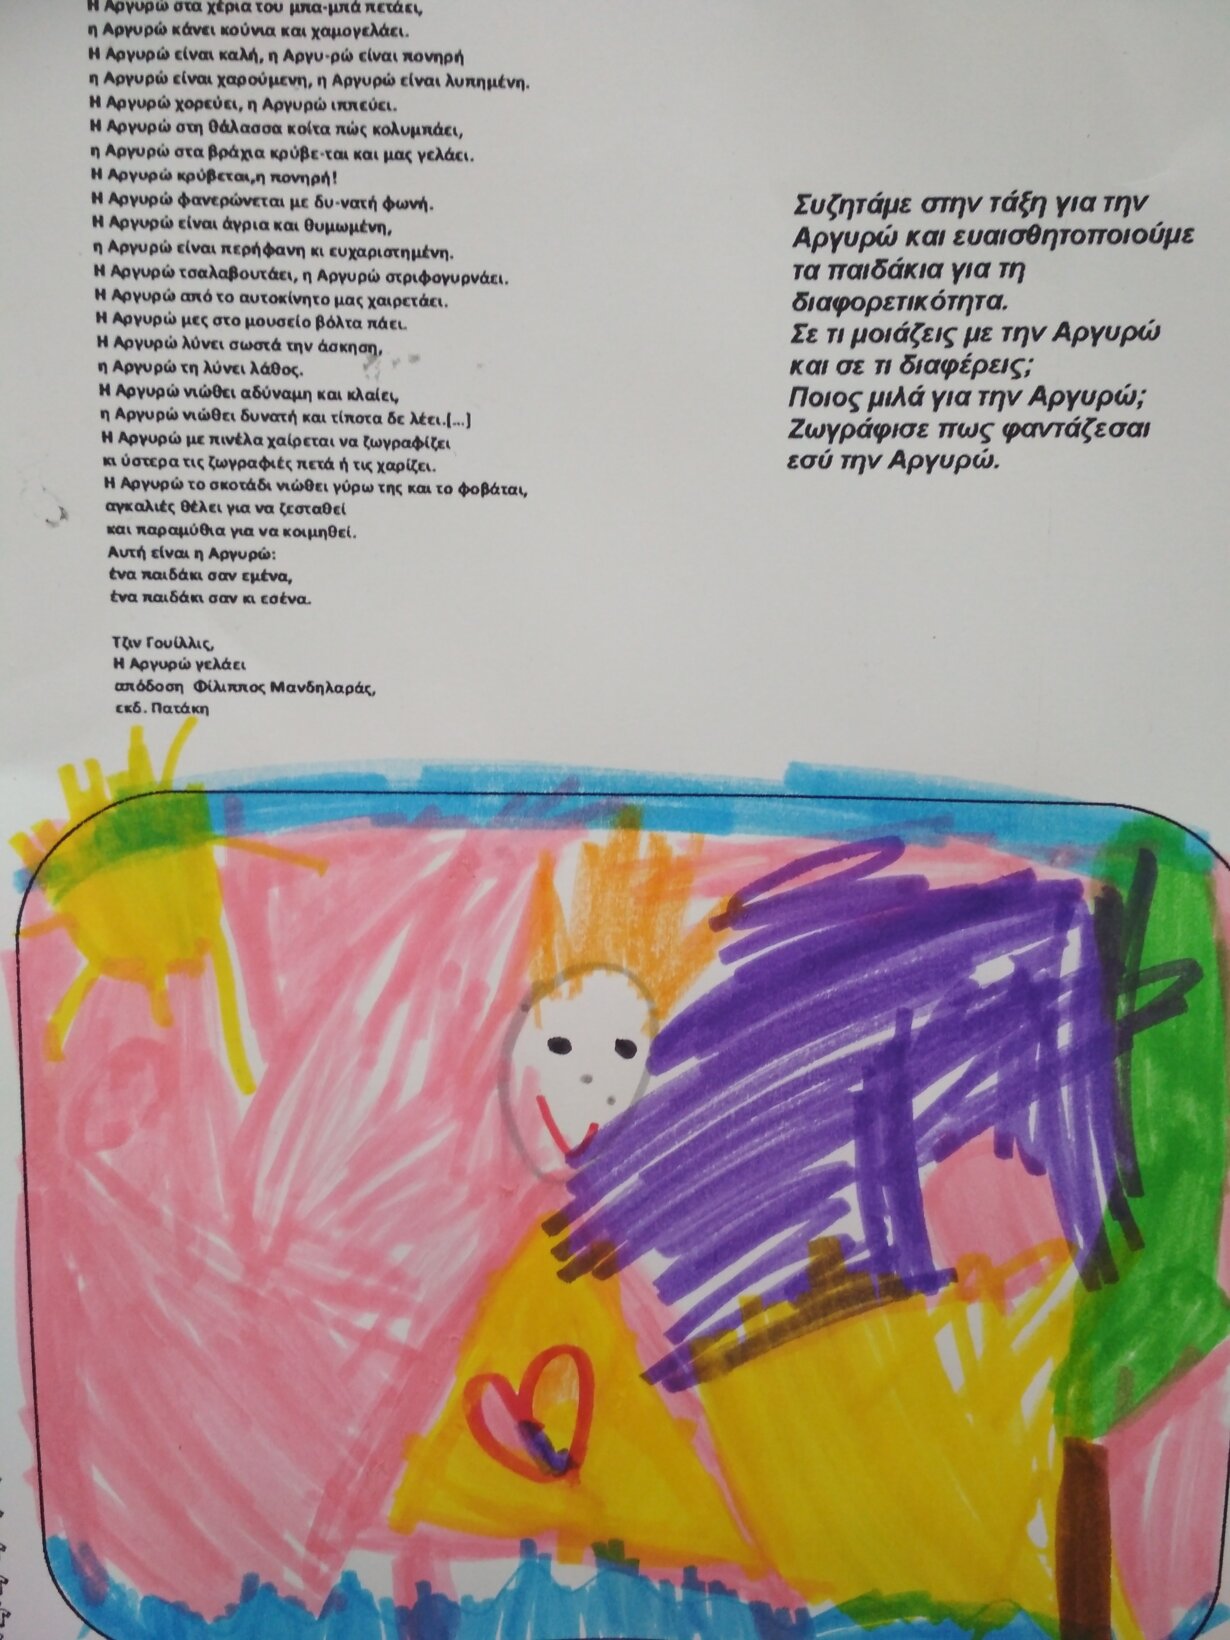 Η Αργυρώ στα χέρια του μπα-μπά πετάει,
η Αργυρώ κάνει κούνια και χαμογελάει.
Η Αργυρώ είναι καλή, η Αργυ-ρώ είναι πονηρή
η Αργυρώ είναι χαρούμενη, η Αργυρώ είναι λυπημένη.
Η Αργυρώ χορεύει, η Αργυρώ ιππεύει.
Η Αργυρώ στη θάλασσα κοίτα πώς κολυμπάει,
η Αργυρώ στα βράχια κρύβε-ται και μας γελάει.
Η Αργυρώ κρύβεται,η πονηρή!
Η Αργυρώ φανερώνεται με δυ-νατή φωνή.
Η Αργυρώ είναι άγρια και θυμωμένη,
η Αργυρώ είναι περήφανη κι ευχαριστημένη.
Η Αργυρώ τσαλαβουτάει, η Αργυρώ στριφογυρνάει.
Η Αργυρώ από το αυτοκίνητο μας χαιρετάει.
Η Αργυρώ μες στο μουσείο βόλτα πάει.
Η Αργυρώ λύνει σωστά την άσκηση,
η Αργυρώ τη λύνει λάθος.
Η Αργυρώ νιώθει αδύναμη και κλαίει,
η Αργυρώ νιώθει δυνατή και τίποτα δε λέει.[...]
Η Αργυρώ με πινέλα χαίρεται να ζωγραφίζει
κι ύστερα τις ζωγραφιές πετά ή τις χαρίζει.
Η Αργυρώ το σκοτάδι νιώθει γύρω της και το φοβάται,
αγκαλιές θέλει για να ζεσταθεί
και παραμύθια για να κοιμηθεί.
Αυτή είναι η Αργυρώ:
ένα παιδάκι σαν εμένα,
ένα παιδάκι σαν κι εσένα.
Τζιν Γουίλλις,
Η Αργυρώ γελάει
απόδοση Φίλιππος Μανδηλαράς,
εκδ. Πατάκη
Συζητάμε στην τάξη για την
Αργυρώ και ευαισθητοποιούμε
τα παιδάκια για τη
διαφορετικότητα.
Σε τι μοιάζεις με την Αργυρώ
και σε τι διαφέρεις;
Ποιος μιλά για την Αργυρώ;
Ζωγράφισε πως φαντάζεσαι
εσύ την Αργυρώ.